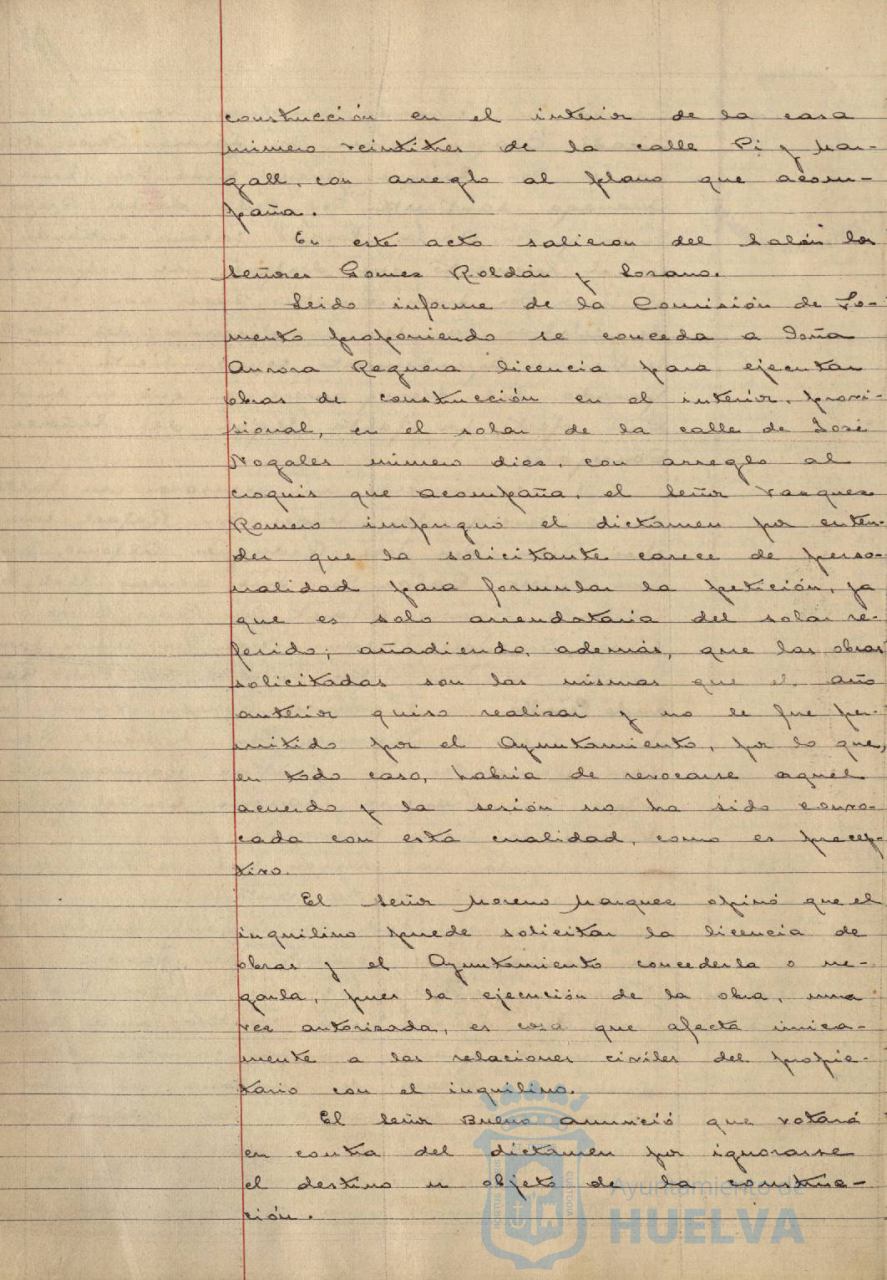 construcción en el interior de la casa
número veintitres de la calle Pi y Mar-
gall, con arreglo al plano que acom-
paña.
En este acto salieron del salón los
señores Gomez Roldán y Lozano.
Leido informe de la Comisión de Fo-
mento proponiendo se conceda a Doña
Aurora Reguera licencia para ejecutar
obras de construcción en el interior, provi-
sional, en el solar de la calle de José
Nogales número diez, con arreglo al
croquis que acompaña, el señor Vazquez
Romero impugnó el dictamen por enten-
der que la solicitante carece de perso-
nalidad para formular la petición, ya
que es solo arrendataria del solar re-
ferido; añadiendo, además, que las obras
solicitadas son las mismas que el año
anterior quiso realizar y no le fue per-
mitido por el Ayuntamiento, por lo que,
en todo caso, habría de revocarse aquel
acuerdo y la sesión no ha sido convo-
cada con esta cualidad, como es precep-
tivo.
El señor Moreno Marquez opinó que el
inquilino puede solicitar la licencia de
obras y el Ayuntamiento concederla o ne-
garla, pues la ejecución de la obra, una
vez autorizada, es cosa que afecta única-
mente a las relaciones civiles del propie-
tario con el inquilino.
El señor Bueno anunció que votará
en contra del dictamen por ignorarse
el destino u objeto de la construc-
ción.
Ayuntamiento de
HUELVA